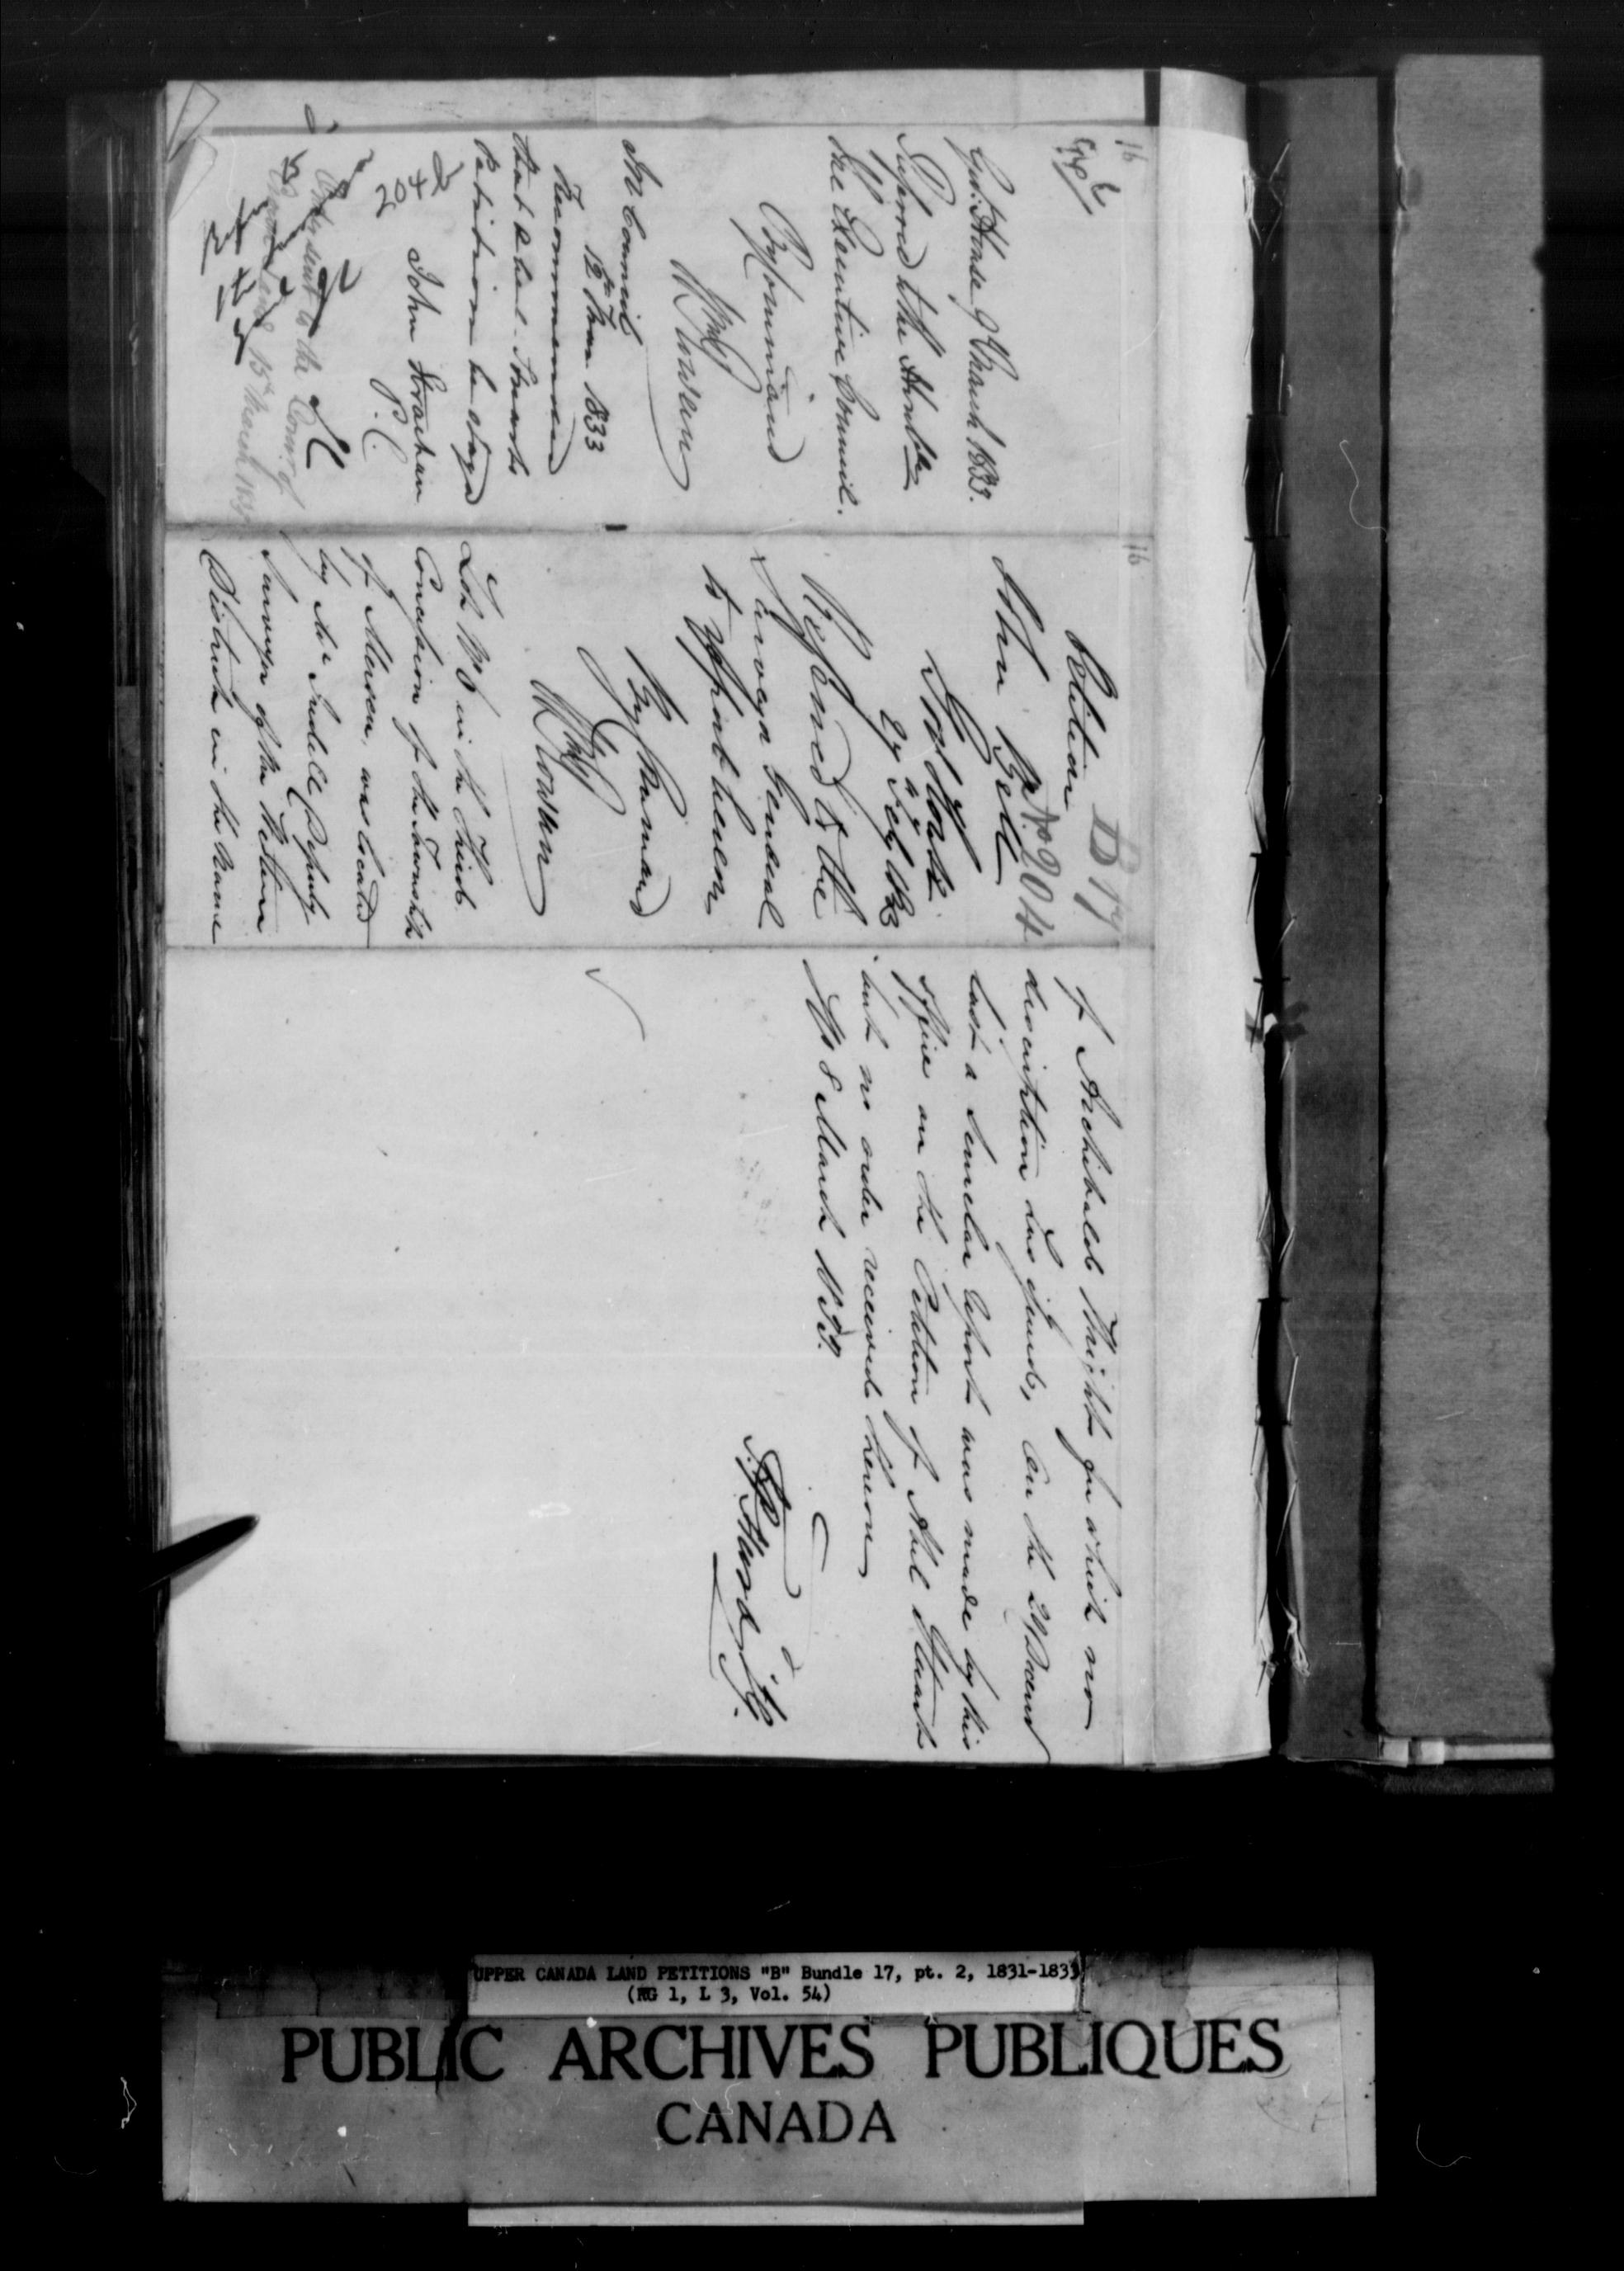 16
Govt. House 9 March 1833.
Referred to the Honble
the Executive Council.
By Command
Wm Rowan
In Council
12th Mar 1833
Recommended
that Abel Stewarts
Petition be
204
John Strachan
P.C.
Copy sent to the Comr. of
Crown Lands 15th March 1833
16
B 17
Petition No. 204
John Bell
York
27 Feby 1833
Referred to the
Surveyor General
to report hereon
By Command
Wm Rowan
Lot No 6 in the Third
Concession of the Township
of Mersea, was located
by Mr Iredell Deputy
Surveyor of the Western
District in the name
of Archibald Wright for which no
description has issued, On the 24 Decemr
last a similar Report was made by this
office on the Petition of Abel Stewart
but no order received thereon
8 March 1833.
S. P. Hurd S. G.
UPPER CANADA LAND PETITIONS "B" Bundle 17, pt. 2, 1831-1833
(RG 1, L 3, Vol. 54)
PUBLIC ARCHIVES PUBLIQUES
CANADA